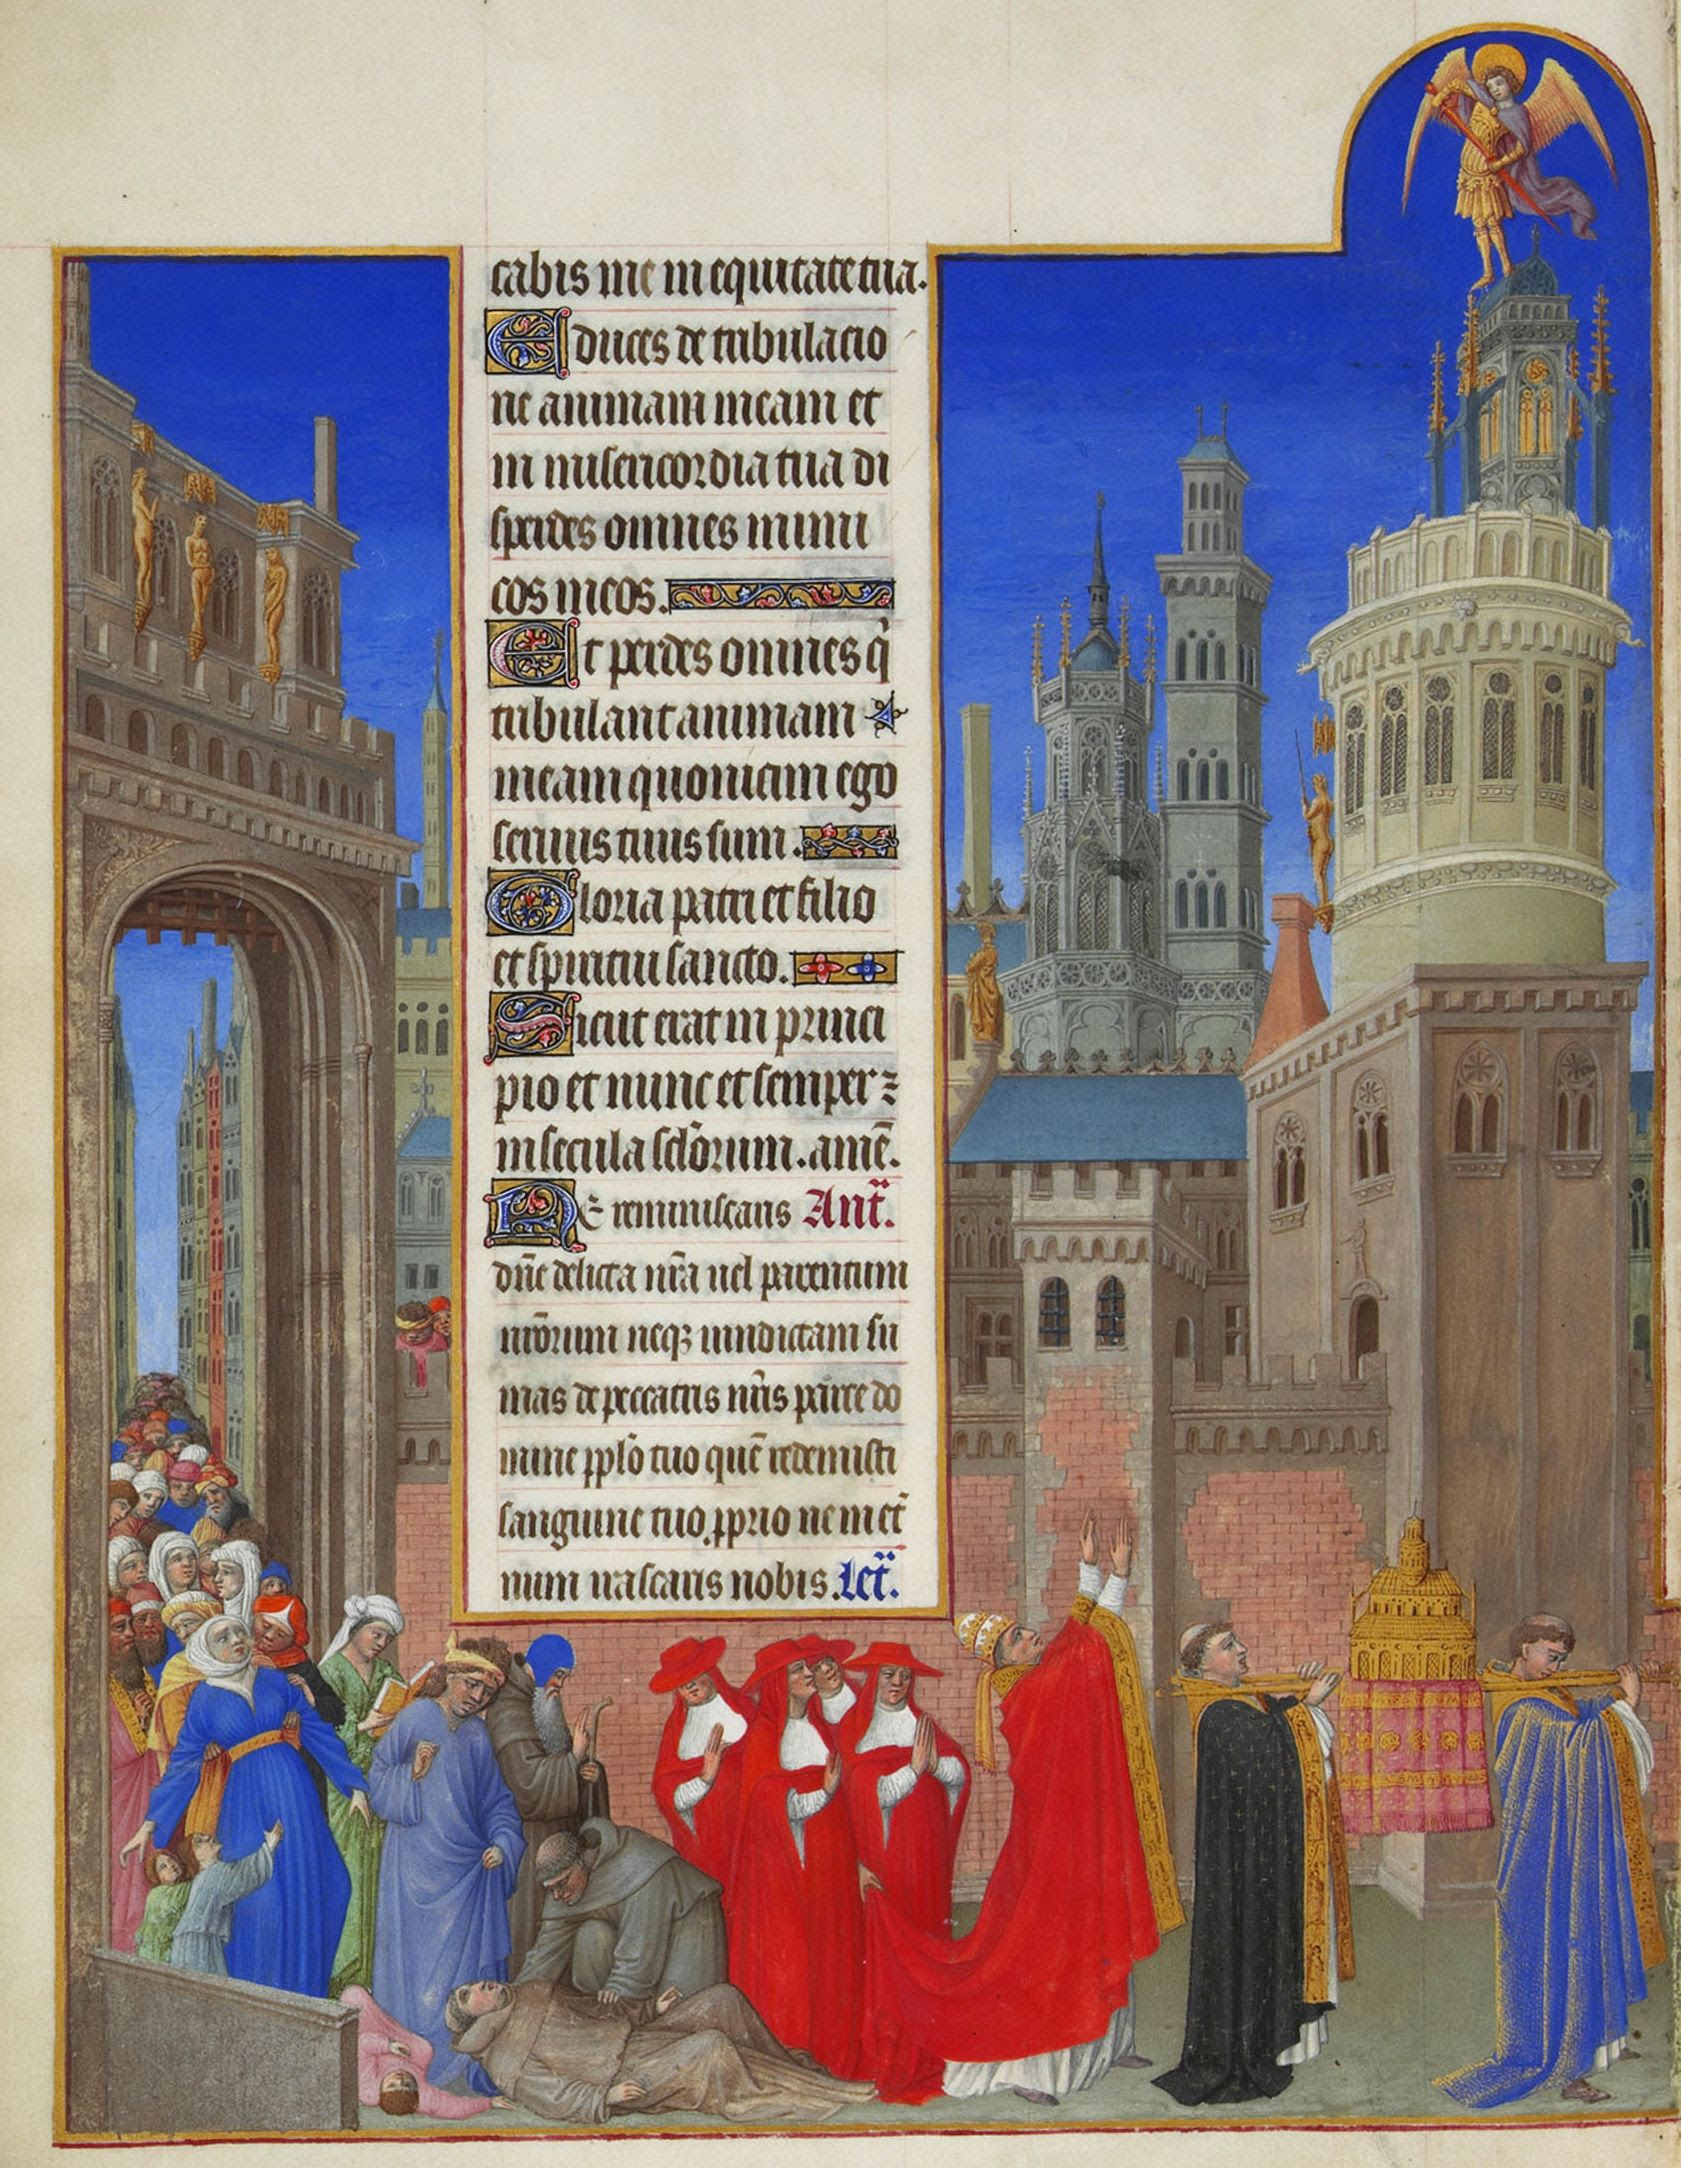 cabis me in equitate tua.
Educes de tribulacio
ne animam meam et
in misericordia tua di
sperdes omnes inimi
cos meos.
Et perdes omnes q̄
tribulant animam
meam quoniam ego
servus tuus sum.
Gloria patri et filio
et spiritui sancto.
Sicut erat in princi
pio et nunc et semper ⁊
in secula sclorum. amē.
Ne reminiscaris Ant.
dn̄e delicta nr̄a uel parentum
nr̄orum neqꝫ uindictam su
mas de peccatis nr̄is parce do
mine pplo tuo quē redemisti
sanguine tuo pprio ne in et̄
num irascaris nobis. Let.